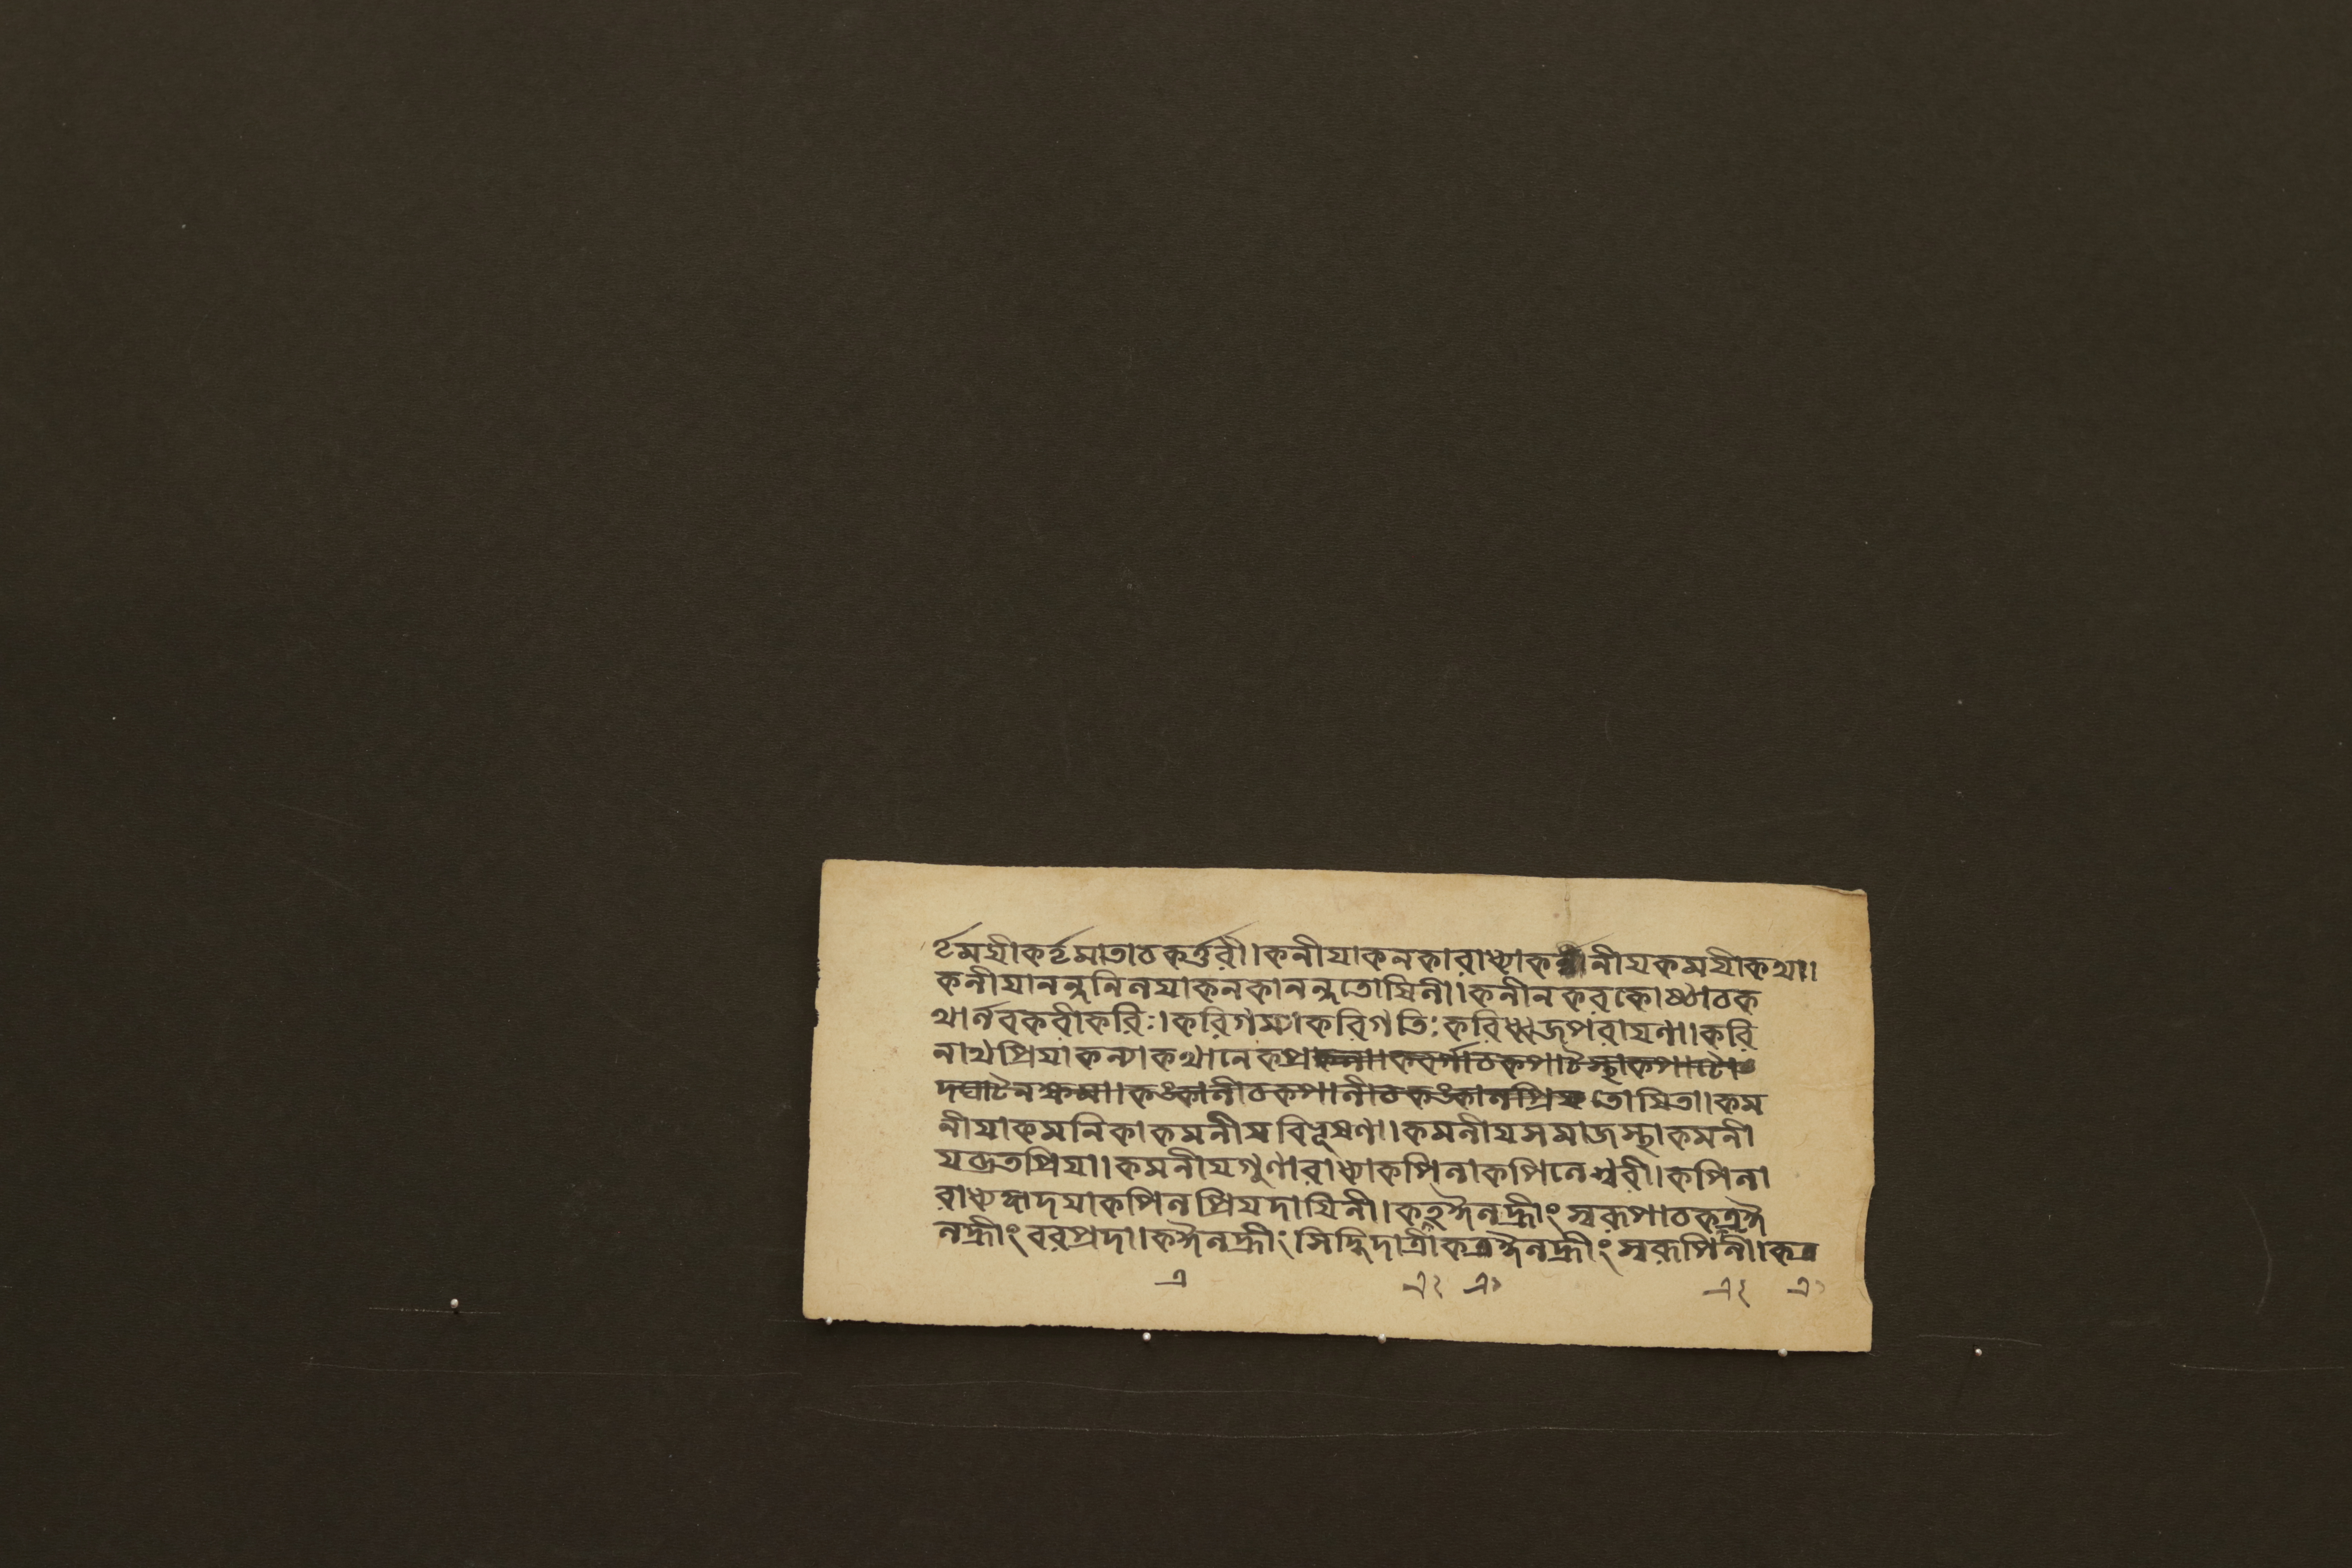 র্দ্দমযীকর্দ্দমাতাচকর্ত্তরী।কনীযাকনকারাধ্যাকনীনীযকমযীকথা।।
কনীযানন্দনিলযাকনকানন্দতোষিনী।।কনীনকরকোষ্ঠাচক
থার্নবকরীকরিঃ।করিগম্যাকরিগতিঃকরিধ্বজপরাযণা।।করি
নাথপ্রিযাকন্যাকথানেকপ্রকলা।।কবর্গাচকপাটৈস্থাকপাটো
দঘাটৈনক্ষমা।।কঙ্কালীচকপালীচকঙ্কালপ্রিযতোষিতা।।কম
নীযাকমনিকাকমনীযবিভূষণা।।কমনীযসমাজস্থাকমনী
যব্রতপ্রিযা।।কমনীযগুণারাধ্যাকপিলাকপিলেশ্বরী।।কপিলা
রাধ্যহৃদযাকপিলপ্রিযদাযিনী।।কএঐলহ্রীংস্বরূপাচকএঐ
লহ্রীংবরপ্রদা।।কঐলহ্রীংসিদ্ধিদাত্রীকএঐলহ্রীংস্বরূপিনী।।কএ
এ এ২ এ১ এ২ এ১